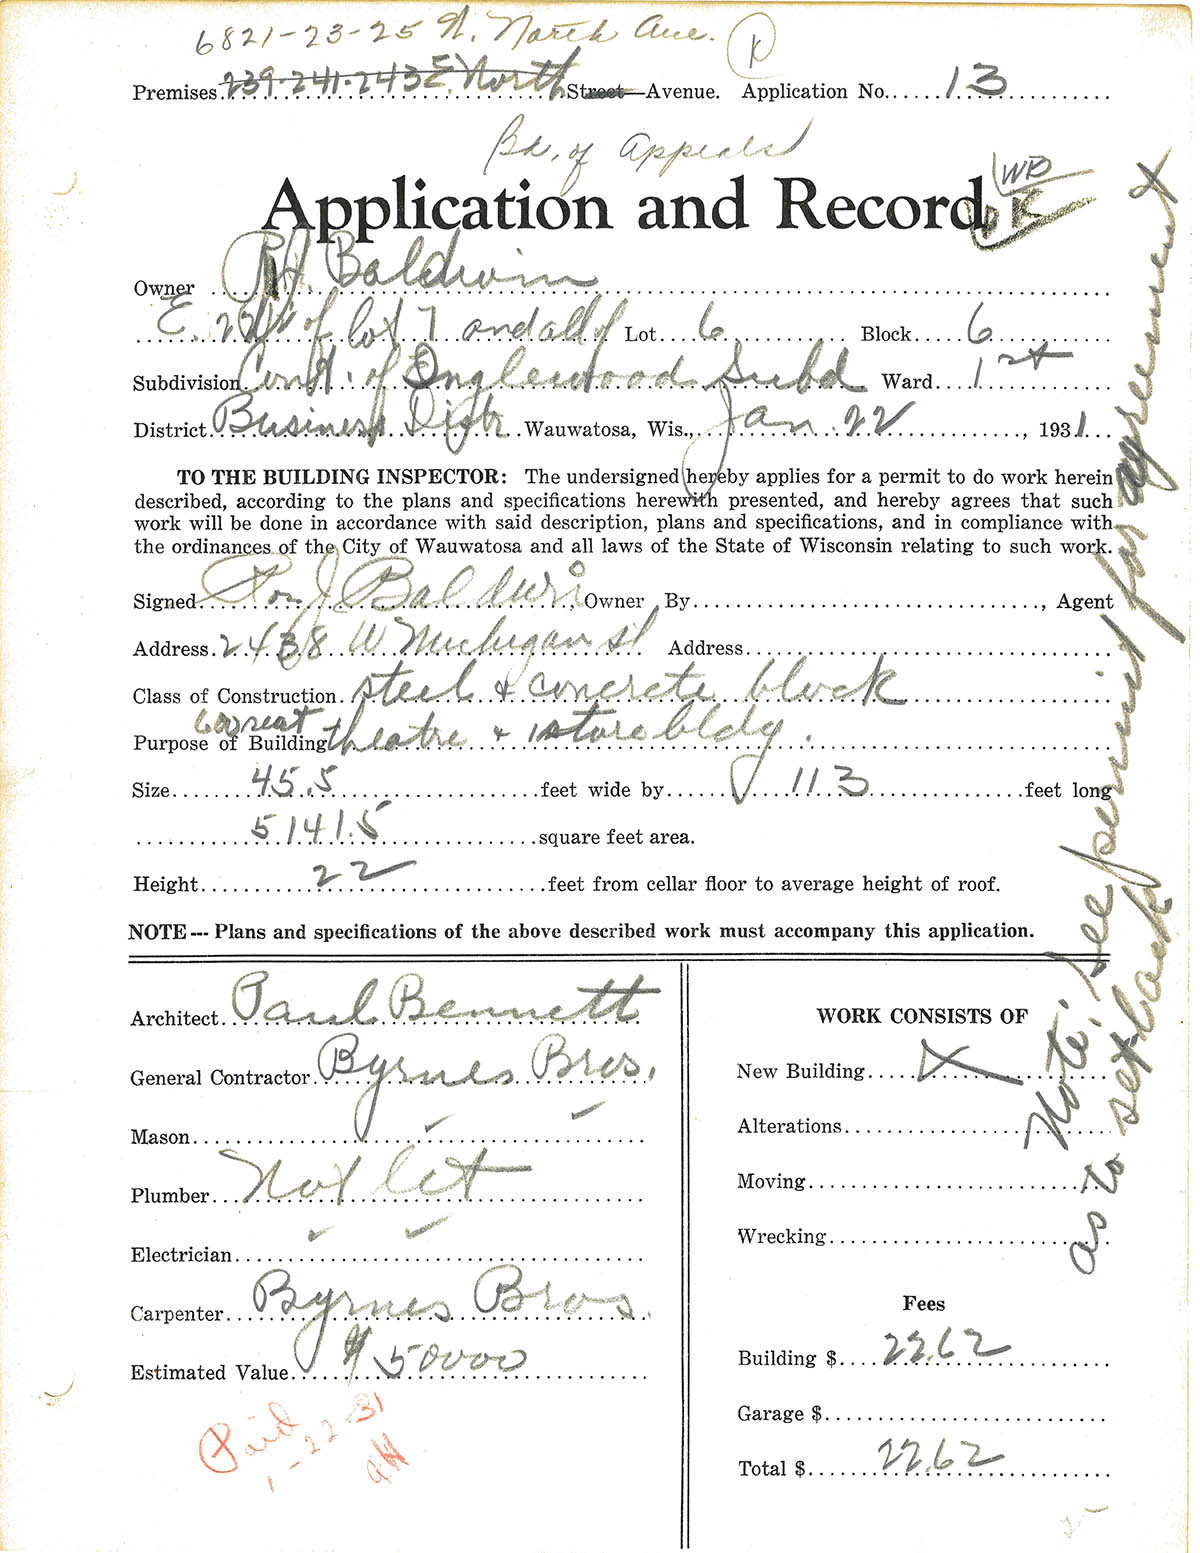 6821-23-25 W. North Ave. K
Premises 239-241-243 E. North Street Avenue. Application No. 13
Bd. of Appeals
Application and Record WB OK
Owner R.J. Baldwin
E. 22½' of lot 7 and all of Lot 6 Block 6
Subdivision Cont. of Englewood Subd Ward 1st
District Business Distr Wauwatosa, Wis., Jan. 22, 1931
TO THE BUILDING INSPECTOR: The undersigned hereby applies for a permit to do work herein
described, according to the plans and specifications herewith presented, and hereby agrees that such
work will be done in accordance with said description, plans and specifications, and in compliance with
the ordinances of the City of Wauwatosa and all laws of the State of Wisconsin relating to such work.
Signed J Baldwin, Owner By, Agent
Address 2438 W Michigan St Address
Class of Construction steel & concrete block
600 seat
Purpose of Building theatre & 1 store bldg.
Size 45.5 feet wide by 113 feet long
5141.5 square feet area.
Height 22 feet from cellar floor to average height of roof.
NOTE --- Plans and specifications of the above described work must accompany this application.
Architect Paul Bennett
General Contractor Byrnes Bros.
Mason
Plumber Not let
Electrician
Carpenter Byrnes Bros.
Estimated Value $ 50000
Paid
1-22-31
WORK CONSISTS OF
New Building X
Alterations
Moving
Wrecking
Fees
Building $ 22.62
Garage $
Total $ 22.62
Note: see permit for agreement
as to setback